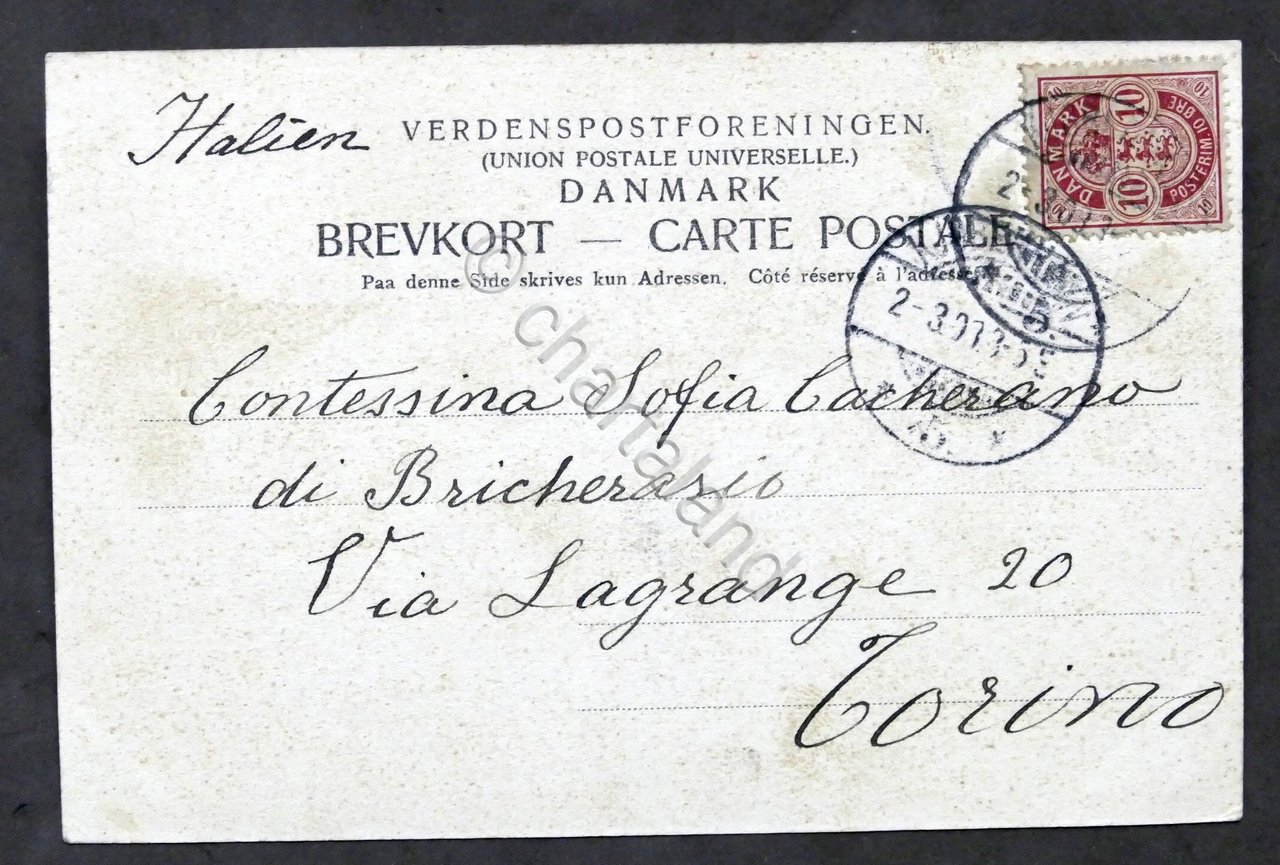 Italien
VERDENSPOSTFORENINGEN.
(UNION POSTALE UNIVERSELLE.)
DANMARK
BREVKORT — CARTE POSTALE
Paa denne Side skrives kun Adressen. Côté réservé à l'adresse.
DANMARK
POSTFRIM. 10 ØRE
10
10
10
10
10
2-3.
Contessina Sofia Cacherano
di Bricherasio
Via Lagrange 20
Torino
© chartaland